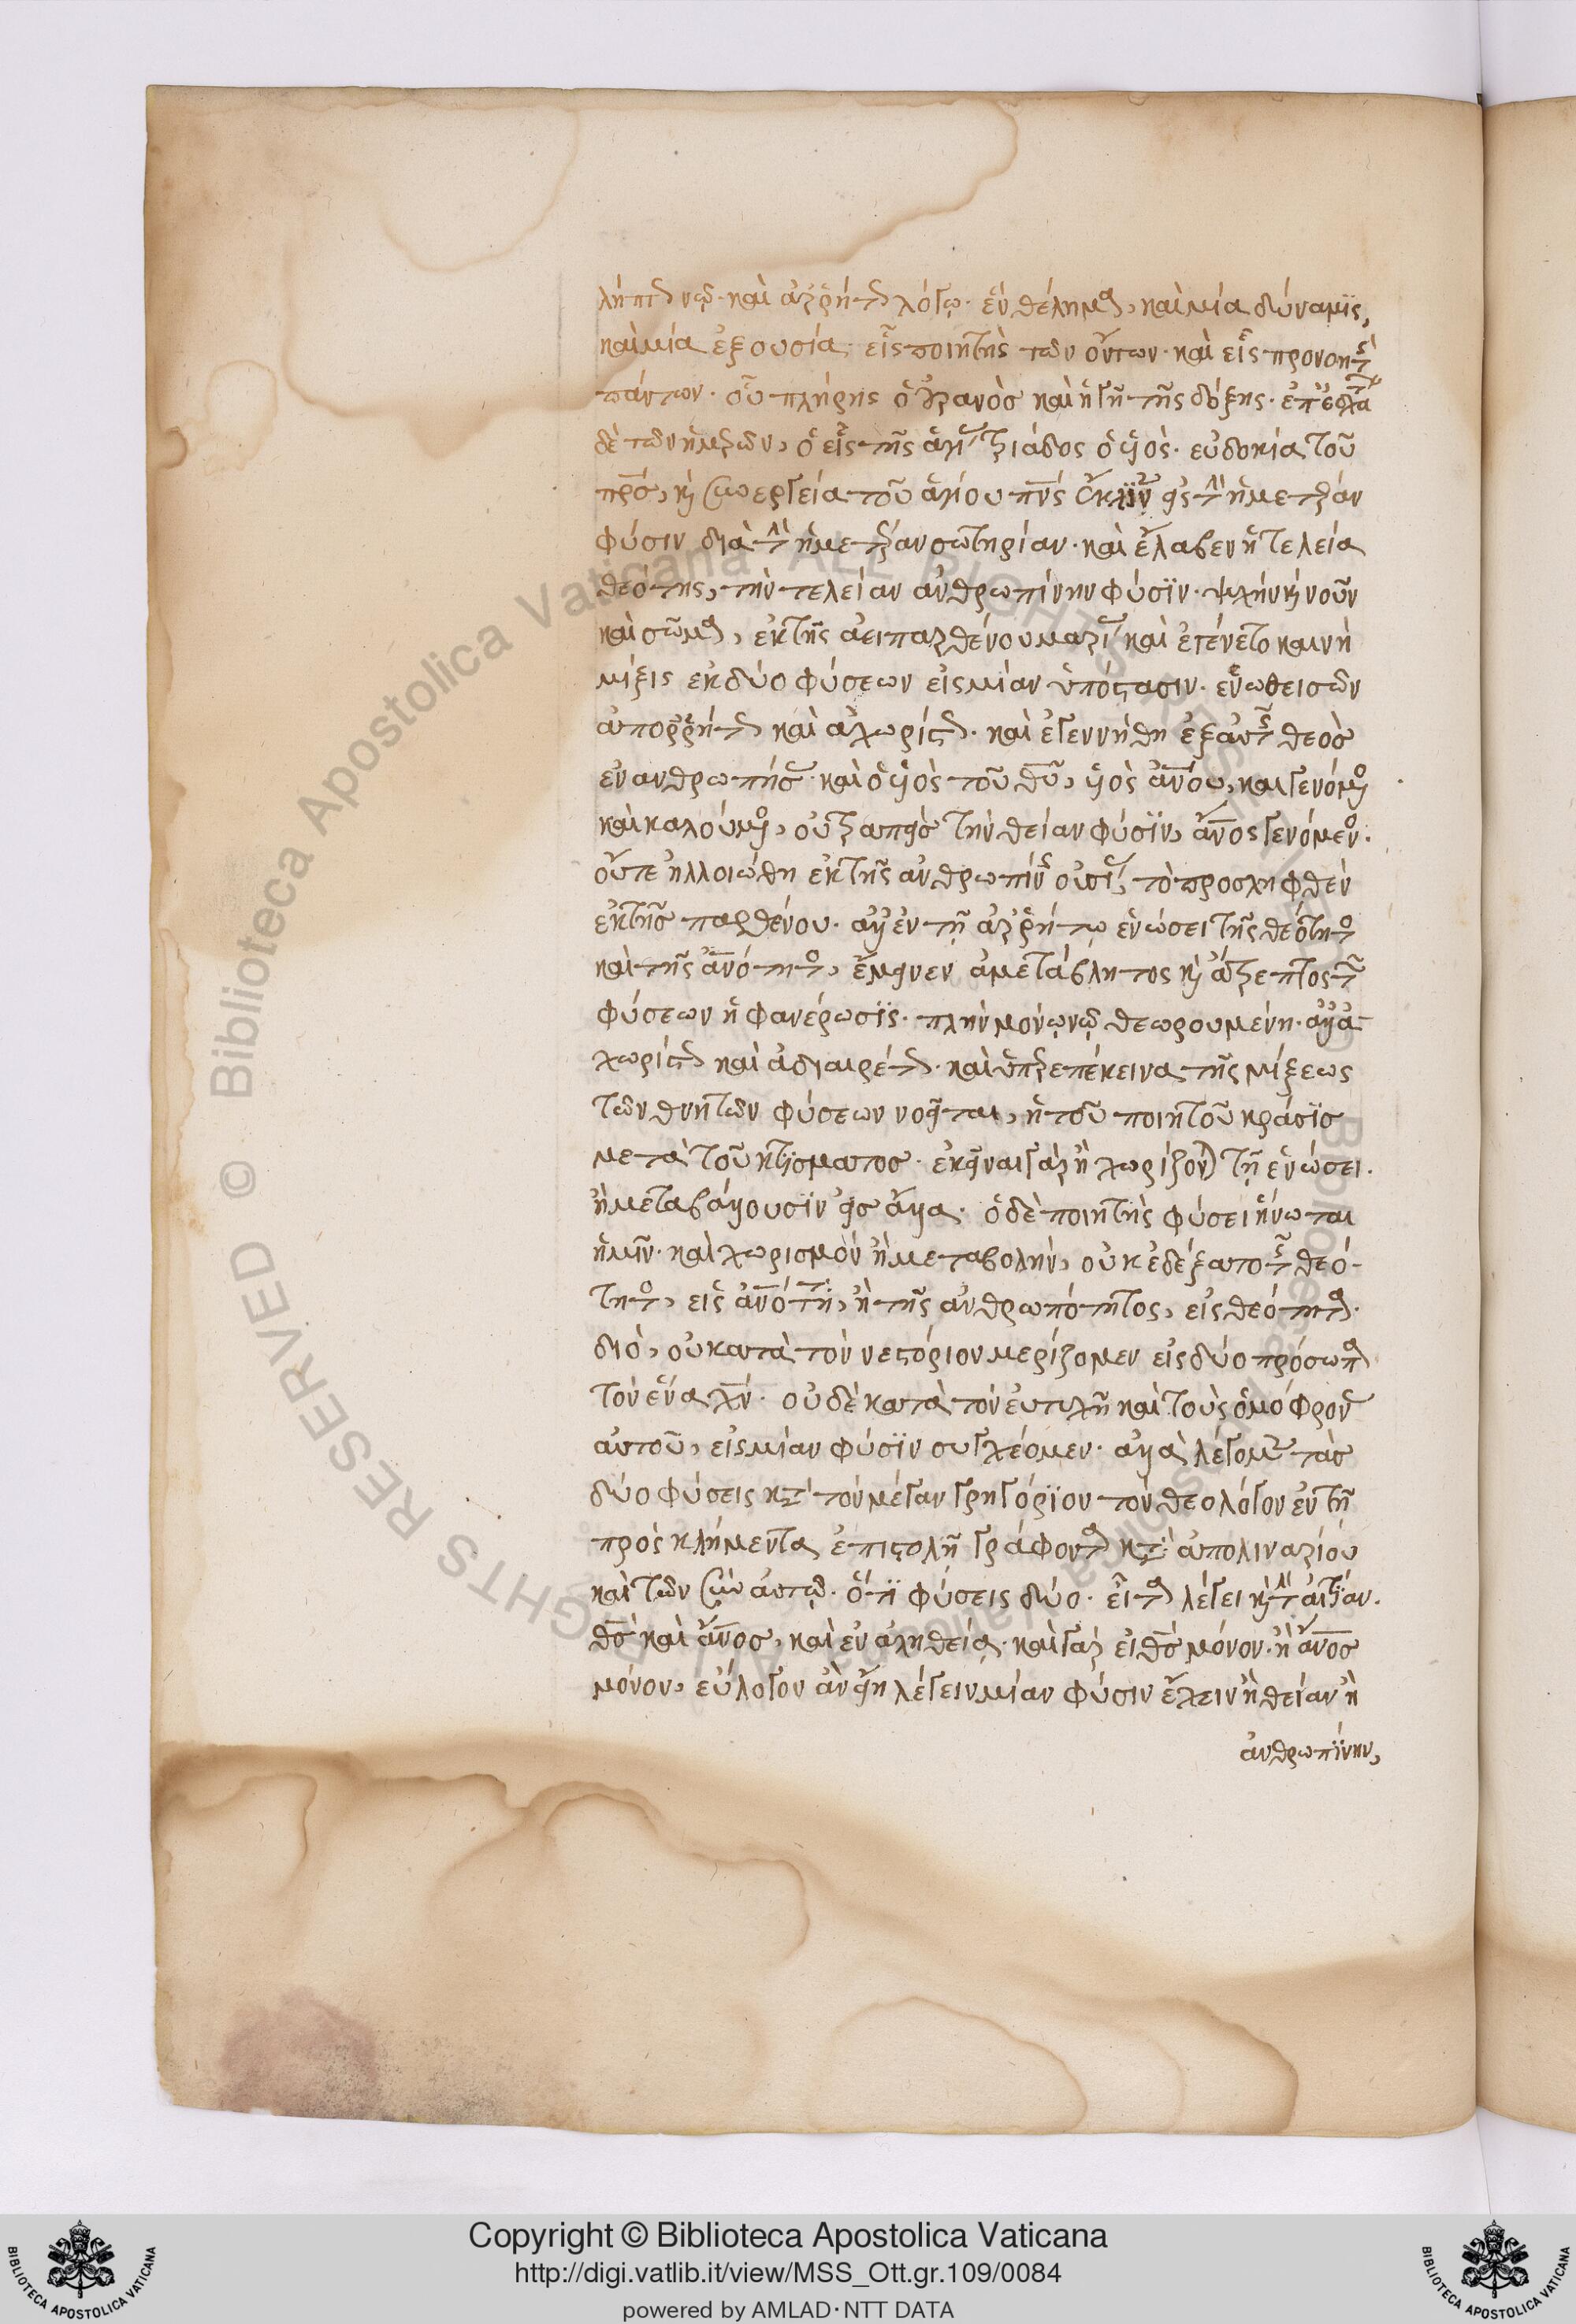 λήπτω νῷ· καὶ ἀρρήτω λόγῳ· ἓν θέλημα, καὶ μία δύναμϊς,
καὶ μία ἐξουσία· εἷς ποιητὴς τῶν ὄντων· καὶ εἷς προνοητὴς
πάντων· οὗ πλήρης ὁ οὐρανὸς καὶ ἡ γῆ τῆς δόξης· ἐπ' ἐσχάτων
δὲ τῶν ἡμερῶν, ὁ εἷς τῆς ἁγίας τριάδος ὁ υἱὸς· εὐδοκία τοῦ
πρς, καὶ συνεργεία τοῦ ἁγίου πνς ἔκλινεν εἰς τὴν ἡμετέραν
φύσιν διὰ τὴν ἡμετέραν σωτηρίαν· καὶ ἔλαβεν ἡ τελεία
θεότης, τὴν τελείαν ἀνθρωπίνην φύσϊν· ψχὴν καὶ νοῦν
καὶ σῶμα, ἐκ τῆς ἀειπαρθένου μαρίας καὶ ἐγένετο καινὴ
μίξις ἐκ δύο φύσεων εἰς μίαν ὑπόστασιν· ἑνωθεισῶν
ἀπορρήτως καὶ ἀχωρίστως· καὶ ἐγεννήθη ἐξ αὐτῆς θεὸς
ἐνανθρωπήσας· καὶ ὁ υἱὸς τοῦ θῦ, υἱὸς ἀνου, καὶ γενόμενος
καὶ καλούμενος, οὐ τραπεὶς τὴν θείαν φύσϊν, ἄνος γενόμενος·
οὔτε ἠλλοιώθη ἐκ τῆς ἀνθρωπίνης οὐσίας, τὸ προσληφθὲν
ἐκ τῆς παρθένου· ἀλλ' ἐν τῇ ἀρρήτω ἑνώσει τῆς θεότητος
καὶ τῆς ἀνότητος, ἔμεινεν ἀμετάβλητος καὶ ἄτρεπτος τῶν
φύσεων ἡ φανέρωσϊς· πλὴν μόνῳ νῷ θεωρουμένη· ἀλλ' ἀ
χωρίστως καὶ ἀδιαιρέτως· καὶ ὑπερεπέκεινα τῆς μίξεως
τῶν θνητῶν φύσεων νοεῖται, ἡ τοῦ ποιητοῦ κράσϊς
μετὰ τοῦ κτϊσματος· ἐκεῖναι γὰρ ἢ χωρίζονται τῇ ἑνώσει·
ἢ μεταβάλλουσϊν εἰς ἄλλα· ὁ δὲ ποιητὴς φύσει ἥνωται
ἡμῖν· καὶ χωρισμὸν ἢ μεταβολὴν, οὐκ ἐδέξατο τῆς θεό-
τητος, εἰς ἀνότητα, ἢ τῆς ἀνθρωπότητος, εἰς θεότητα·
διὸ, οὐ κατὰ τὸν νεστόριον μερίζομεν εἰς δύο πρόσωπα
τὸν ἕνα χν· οὐδὲ κατὰ τὸν εὐτυχῆ καὶ τοὺς ὁμόφρονας
αὐτοῦ, εἰς μίαν φύσϊν συγχέομεν· ἀλλὰ λέγομεν τὰς
δύο φύσεις κατὰ τὸν μέγαν γρηγόρϊον τὸν θεολόγον ἐν τῇ
πρὸς κλήμεντα ἐπιστολῇ γράφοντα κατὰ ἀπολιναρίου
καὶ τῶν σὺν αὐτῷ· ὅτϊ φύσεις δύο· εἶτα λέγει καὶ τὴν αἰτΐαν·
θς καὶ ἄνος, καὶ ἐν ἀληθείᾳ· καὶ γὰρ εἰ θς μόνον· ἢ ἄνος
μόνον, εὔλογον ἂν εἴη λέγειν μίαν φύσιν ἔχειν ἢ θείαν ἢ
ἀνθρωπΐνην,
Copyright © Biblioteca Apostolica Vaticana
http://digi.vatlib.it/view/MSS_Ott.gr.109/0084
powered by AMLAD·NTT DATA
BIBLIOTECA APOSTOLICA VATICANA
BIBLIOTECA APOSTOLICA VATICANA